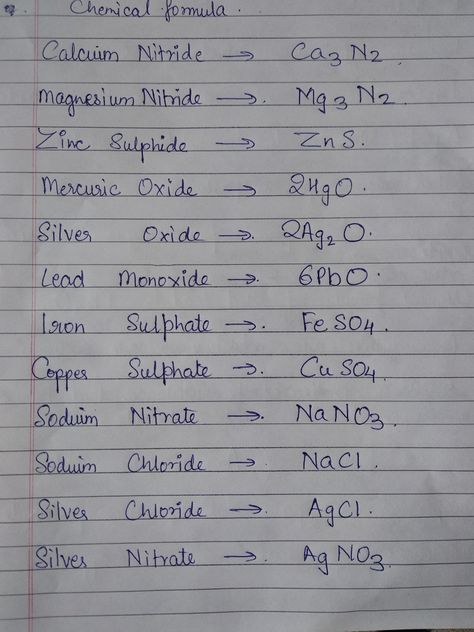 Chemical formula.
Calcium Nitride → Ca3N2.
Magnesium Nitride →. Mg3N2.
Zinc Sulphide → ZnS.
Mercuric Oxide → 2HgO.
Silver Oxide →. 2Ag2O.
Lead Monoxide → 6PbO.
Iron Sulphate →. FeSO4.
Copper Sulphate →. CuSO4.
Soduim Nitrate →. NaNO3.
Soduim Chloride → NaCl.
Silver Chloride →. AgCl.
Silver Nitrate →. AgNO3.